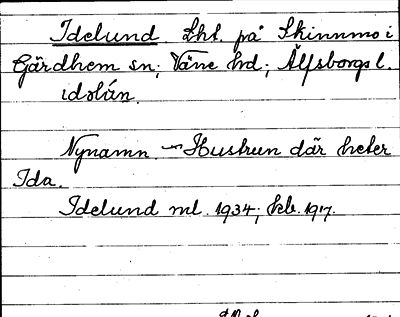 Idelund Lht. på Skinnmo i
Gärdhem sn; Väne hd; Älfsborgs l.
Nynamn. Hustrun där heter
Ida.
Idelund ml. 1934; kb. 1917.